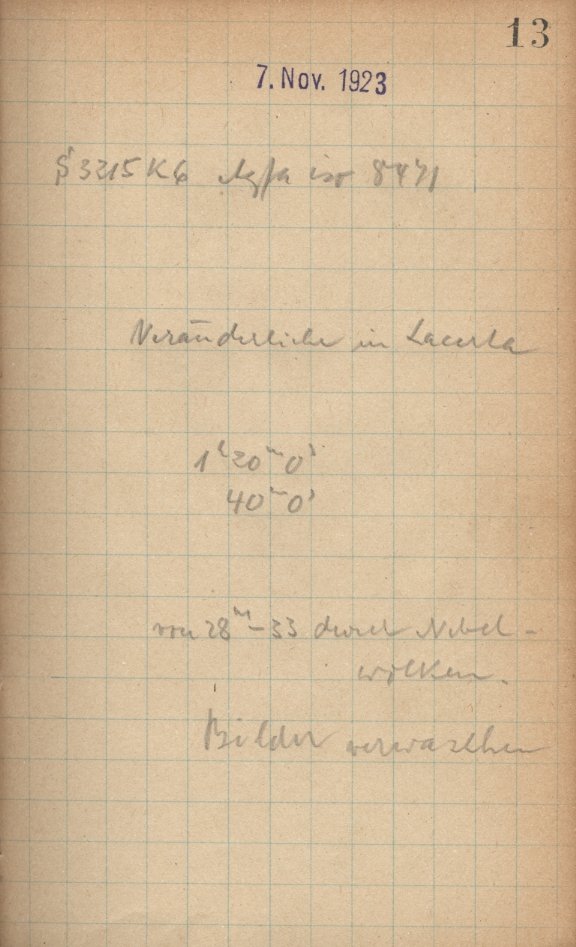 13
7. Nov. 1923
§ 3215 K6 Agfa iso 8471
Veränderliche in Lacerta
1ʰ 20ᵐ 0ˢ
40ᵐ 0ˢ
von 28ᵐ – 33 durch Nebel-
wolken.
Bilder verwaschen